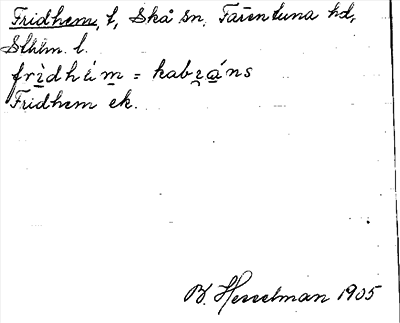 Fridhem, t, Skå sn, Färentuna hd,
Sthlm. l.
frìdhǽm = kabráns
Fridhem ek.
B. Hesselman 1905